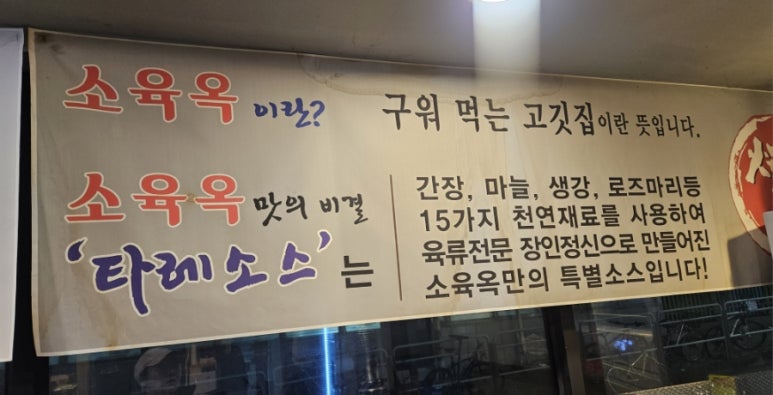 소육옥 이란? 구워 먹는 고깃집이란 뜻입니다.
소육옥 맛의 비결
'타레소스'는
간장, 마늘, 생강, 로즈마리등
15가지 천연재료를 사용하여
육류전문 장인정신으로 만들어진
소육옥만의 특별소스입니다!